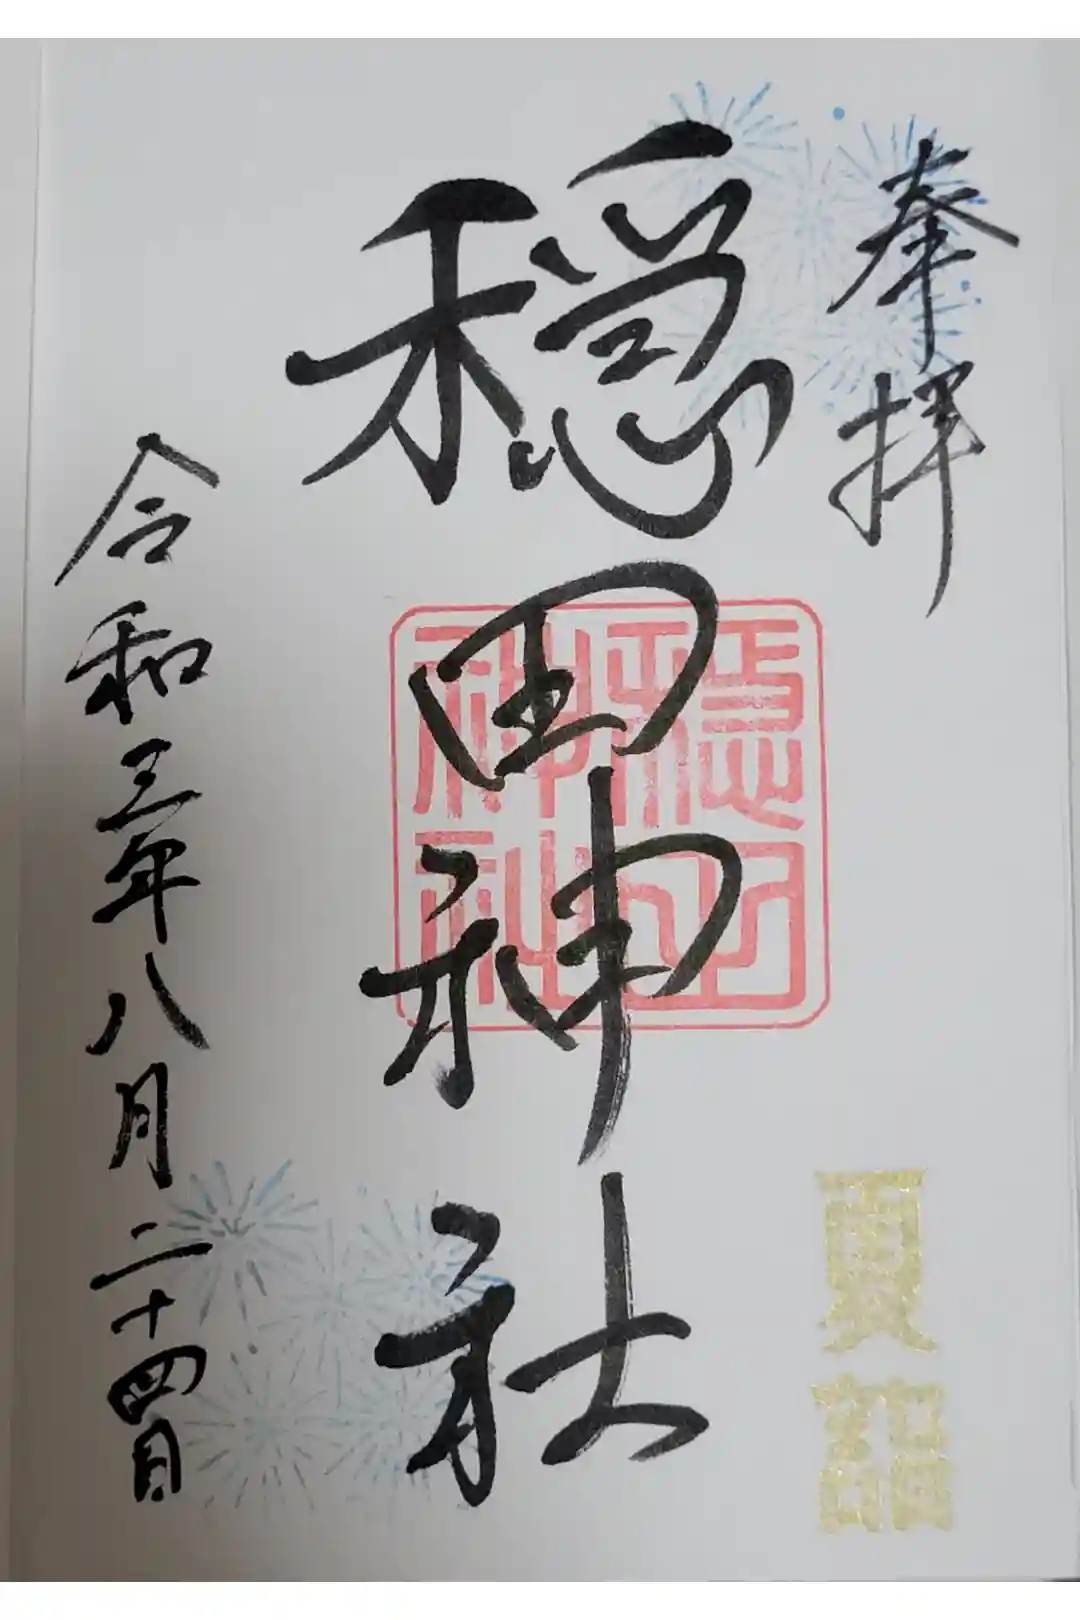 奉拝
夏詣
穏田神社
穏田神社
令和三年八月二十四日